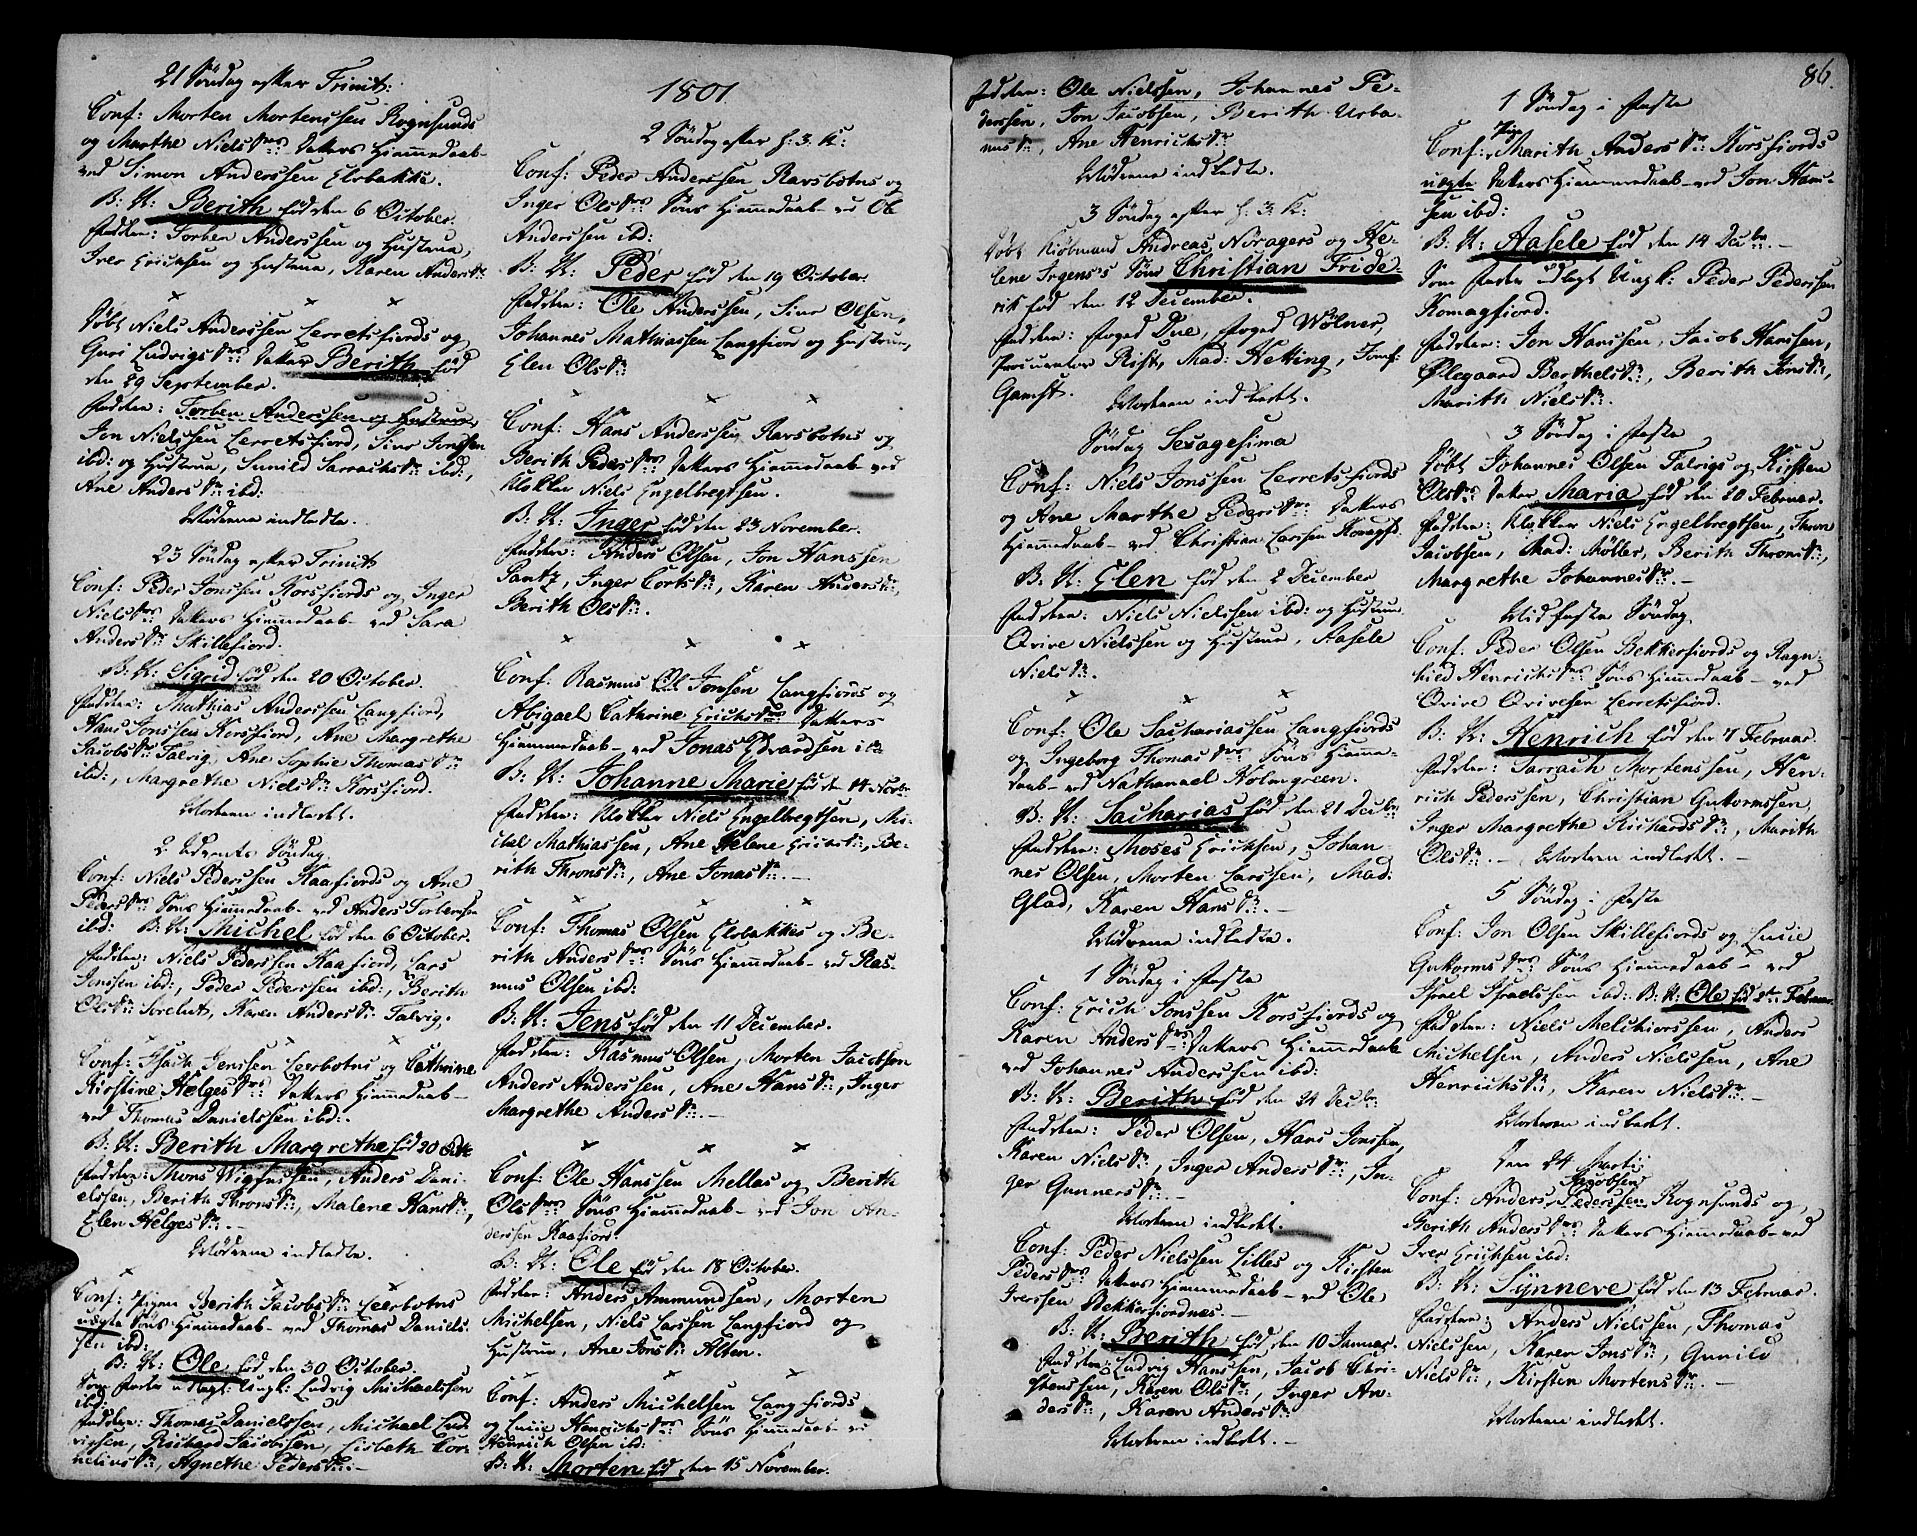 21 Søndag efter Trinit:
Conf: Morten Mortenssen Rognsunds
og Marthe Nielsdrs Datters Hiemmedaab
ved Simon Anderssen Elvbakke.
B: N: Berith fød den 6 October.
Faddere: Torben Anderssen og Hustrue,
Iver Erichsen og Hustrue, Karen Andersdr
Døbt Niels Anderssen Lerretsfiords og
Guri Ludvigsdrs Datter Berith fød
den 29 September.
Faddere: Torben Anderssen og Hustrue
Jon Nielssen Lerretsfiord, Siur Jonssen
ibd: og Hustrue, Gunild Sarrachsdr ibd:,
Ane Andersdr ibd:
Mødrene indledte.
23 Søndag efter Trinit
Conf: Peder Jonssen Korsfiords og Inger
Nielsdrs Datters Hiemmedaab ved Sara
Andersdr Skillefiord.
B: N: Sigrid fød den 20 October.
Faddere: Mathias Anderssen Langfiord,
Hans Jonssen Korsfiord, Ane Margrethe
Jacobsdr Talvig, Ane Sophie Thomasdr
ibd:, Margrethe Nielsdr Korsfiord.
Moderen indledt.
2 Advents Søndag
Conf: Niels Pederssen Kaafiords og Ane
Pedersdrs Søns Hiemmedaab ved Anders Torbenssen
ibd: B: N: Michel fød den 6 October.
Faddere: Niels Pederssen Kaafiord, Lars
Jonssen ibd:, Peder Pederssen ibd:, Berith
Olsdr, Karen Andersdr Talvig.
Conf: Isach Jenssen Leerbotns og Cathrine
Kirstine Helgesdrs Datters Hiemmedaab
ved Thomas Danielssen ibd:
B: N: Berith Margrethe fød 20 Octbr
Faddere: Mons Wigfussen, Anders Dani-
elssen, Berith Thronsdr, Malene Hansdr,
Elen Helgesdr.
Mødrene indledte.
Conf: Pigen Berith Jacobsdr Leerbotns
uægte Søns Hiemmedaab ved Thomas Daniels-
sen ibd:
B: N: Ole fød den 30 October.
Som Fader udlagt: Ungk: Ludvig Michaelssen
ibd:
Faddere: Thomas Danielssen, Michael Lud-
vigsen, Richard Jacobssen, Lisbeth Cor-
neliusdr, Agnethe Pedersdr
1801
2 Søndag efter H: 3. K:
Conf: Peder Anderssen Ravsbotns og
Inger Olsdrs Søns Hiemmedaab ved Ole
Anderssen ibd:
B: N: Peder fød den 19 October
Faddere: Ole Anderssen, Siur Olsen,
Johannes Mathiassen Langfiord og Hustrue,
Elen Olsdr
Conf: Hans Anderssen Ravsbotns og
Berith Pedersdrs Datters Hiemmedaab ved
Klokker Niels Engelbregtsen.
B: N: Inger fød den 23 November.
Faddere: Anders Olsen, Jon Hanssen
Pantz, Inger Cortsdr, Karen Andersdr,
Berith Olsdr.
Conf: Rasmus Ol Jonssen Langfiords og
Abigael Cathrine Erichsdrs Datters
Hiemmedaab ved Jonas Edvardsen ibd
B: N: Johanne Marie fød den 14 Novbr
Faddere: Klokker Niels Engelbregtsen, Mi-
chel Mathiassen, Ane Helene Ericsdr, Be-
rith Thronsdr, Ane Jonasdr.
Conf: Thomas Olsen Elvbakkes og Be-
rith Andersdrs Søns Hiemmedaab ved Ras-
mus Olsen ibd:
B: N: Jens fød den 11 December.
Faddere: Rasmus Olsen, Morten Jacobsen
Anders Anderssen, Ane Hansdr, Inger
Margrethe Andersdr.
Conf: Ole Hanssen Mellas og Berith
Olsdrs Søns Hiemmedaab ved Jon An-
derssen Kaafiord.
B: N: Ole fød den 18 October.
Faddere: Anders Ammundsen, Morten
Michelsen, Niels Larssen Langfiord og
Hustrue, Ane Jonsdr Alten.
Conf: Anders Michelsen Langfiords
og Lucie Henrichsdrs Søns Hiemmedaab ved
Henrich Olsen ibd:
B: N: Morten fød den 15 November.
86.
Faddere: Ole Nielssen, Johannes Pe-
derssen, Jon Jacobsen, Berith Urba-
nusdr, Ane Henrichsdr
Mødrene indledte.
3 Søndag efter H: 3. K:
Døbt Kiøbmand Andreas Noragers og He-
lene Irgens's Søn Christian Fride-
rik fød den 12 December.
Faddere: Foged Due, Foged Wolner,
Procurator Rist, Mad: Hetting, Jomf:
Gamst.
Moderen indledt.
Søndag Sexagesima
Conf: Niels Jonssen Lerretsfiords
og Ane Marthe Pedersdrs Datters
Hiemmedaab ved Christian Larsen
B: N: Elen fød den 2 December
Faddere: Niels Nielssen ibd: og Hustrue
Qvive Nielssen og Hustrue, Aasele
Nielsdr.
Conf: Ole Sachariassen Langfiords
og Ingeborg Thomasdrs Søns Hiemme-
daab ved Nathanael Holmgreen.
B: N: Sacharias fød den 21 Decbr
Faddere: Moses Erichsen, Johan-
nes Olsen, Morten Larssen, Mad:
Glad, Karen Hansdr.
Mødrene indledte.
1 Søndag i Faste
Conf: Erich Jonssen Korsfiords og
Karen Andersdrs Datters Hiemmedaab
ved Johannes Anderssen ibd:
B: N: Berith fød den 24 Decbr
Faddere: Peder Olsen, Hans Jonssen,
Karen Nielsdr, Inger Andersdr, In-
ger Gunnersdr.
Moderen indledt.
Conf: Peder Nielssen Lilles og Kirsten
Pedersdrs Datters Hiemmedaab ved Ole
Iverssen Bekkerfiordnes.
B: N: Berith fød den 10 Januar.
Faddere: Ludvig Hanssen, Jacob Chri-
stenssen, Karen Olsdr, Inger An-
dersdr, Karen Andersdr
Moderen indledt.
1 Søndag i Faste
Pige
Conf: Marith Andersdr Korsfiords
uægte Datters Hiemmedaab ved Jon Hans-
sen ibd:
B: N: Aasele fød den 14 Decbr.
Som Fader udlagt Ungk: Peder Pederssen
Komagfiord.
Faddere: Jon Hanssen, Jacob Hanssen,
Ølegaard Berthelsdr, Berith Jonsdr,
Marith Nielsdr.
3 Søndag i Faste
Døbt Johannes Olsen Talvigs og Kirsten
Olsdrs Datter Maria fød den 20 Februar.
Faddere: Klokker Niels Engelbregtsen, Thron
Jacobsen, Mad: Møller, Berith Thronsdr,
Margrethe Johannesdr.
Midfaste Søndag
Conf: Peder Olsen Bekkerfiords og Ragn-
hild Henrichsdrs Søns Hiemmedaab ved
Qvive Qvivesen Lerretsfiord.
B: N: Henrich fød den 7 Februar.
Faddere: Sarrach Mortenssen, Hen-
rich Pederssen, Christian Guttormssen
Inger Margrethe Richardsdr, Marith
Olsdr. Moderen indledt.
5 Søndag i Faste
Conf: Jon Olsen Skillefiords og Lucie
Guttormsdrs Søns Hiemmedaab ved
Israel Israelssen ibd: B: N: Ole fød 2den Februar.
Faddere: Niels Melchiorssen, Anders
Michelsen, Anders Nielssen, Ane
Henrichsdr, Karen Nielsdr.
Moderen indledt.
Den 24 Martii
Jacobsen
Conf: Anders Pederssen Rognsunds og
Berith Andersdrs Datters Hiemmedaab ved
Iver Erichsen ibd:
B: N: Synneve fød den 13 Februar.
Faddere: Anders Nielssen, Thomas
Nielssen, Karen Jonsdr, Gunild
Nielsdr, Kirsten Mortensdr.
Moderen indledt.